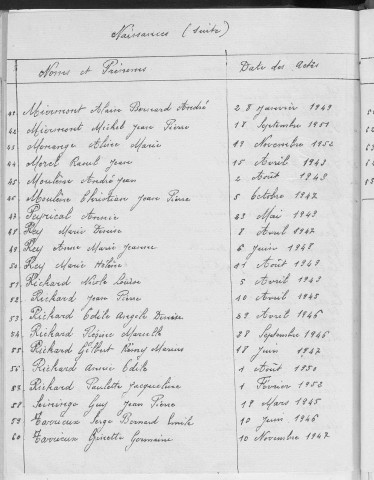 Naissances (suite)
Noms et Prénoms Date des Actes
41. Miermont Alain Bernard André 28 Janvier 1949
42 Miermont Michel Jean Pierre 18 Septembre 1951
43 Monange Aline Marie 19 Novembre 1952
44 Morel Raoul Jean 15 Avril 1943
45 Moulène André Jean 2 Août 1943
46 Moulène Christian Jean Pierre 5 Octobre 1947
47 Peyrical Annie 23 Mai 1949
48 Rey Marie Denise 8 Avril 1947
49. Rey Anne Marie Jeanne 6 Juin 1948
50 Rey Marie Hélène 11 Août 1949
51 Richard Nicole Louise 5 Avril 1943
52. Richard Jean Pierre 10 Avril 1945
53 Richard Edile Angèle Denise 29 Avril 1946
54 Richard Marcelle 28 Septembre 1946
55. Richard Gilbert Rémy Marius 18 Juin 1947
56 Richard Annie Edile 1 Août 1950
Richard Paulette Jacqueline 1 Février 1953
58. Guy Jean Pierre 19 Mars 1945
59 Tavrieux Serge Bernard Emile 10 Juin 1946
60 Tavrieux Ginette Germaine 10 Novembre 1947